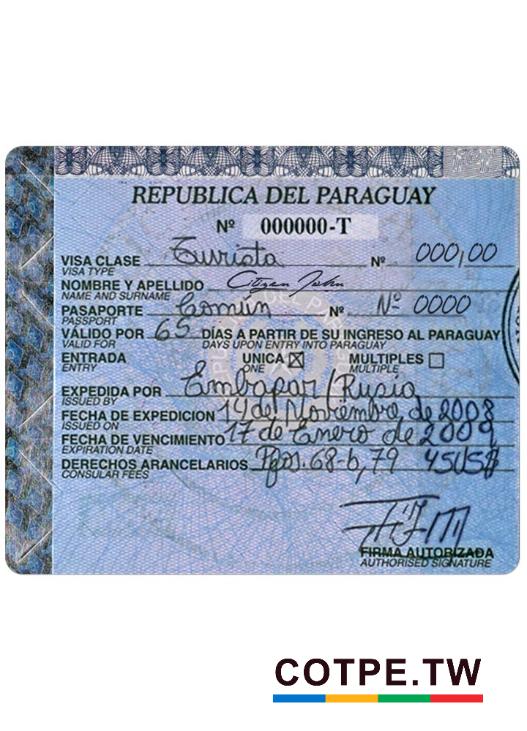 REPUBLICA DEL PARAGUAY
Nº 000000-T
VISA CLASE Turista Nº 000,00
VISA TYPE
NOMBRE Y APELLIDO Citizen John
NAME AND SURNAME
PASAPORTE Común Nº Nº 0000
PASSPORT
VÁLIDO POR 65 DÍAS A PARTIR DE SU INGRESO AL PARAGUAY
VALID FOR DAYS UPON ENTRY INTO PARAGUAY
ENTRADA UNICA ☒ MULTIPLES ☐
ENTRY ONE MULTIPLE
EXPEDIDA POR Embapar/Rusia
ISSUED BY
FECHA DE EXPEDICION 14 de Noviembre de 2008
ISSUED ON
FECHA DE VENCIMIENTO 17 de Enero de 2009
EXPIRATION DATE
DERECHOS ARANCELARIOS 68-b,79 45US$
CONSULAR FEES
FIRMA AUTORIZADA
AUTHORISED SIGNATURE
COTPE.TW